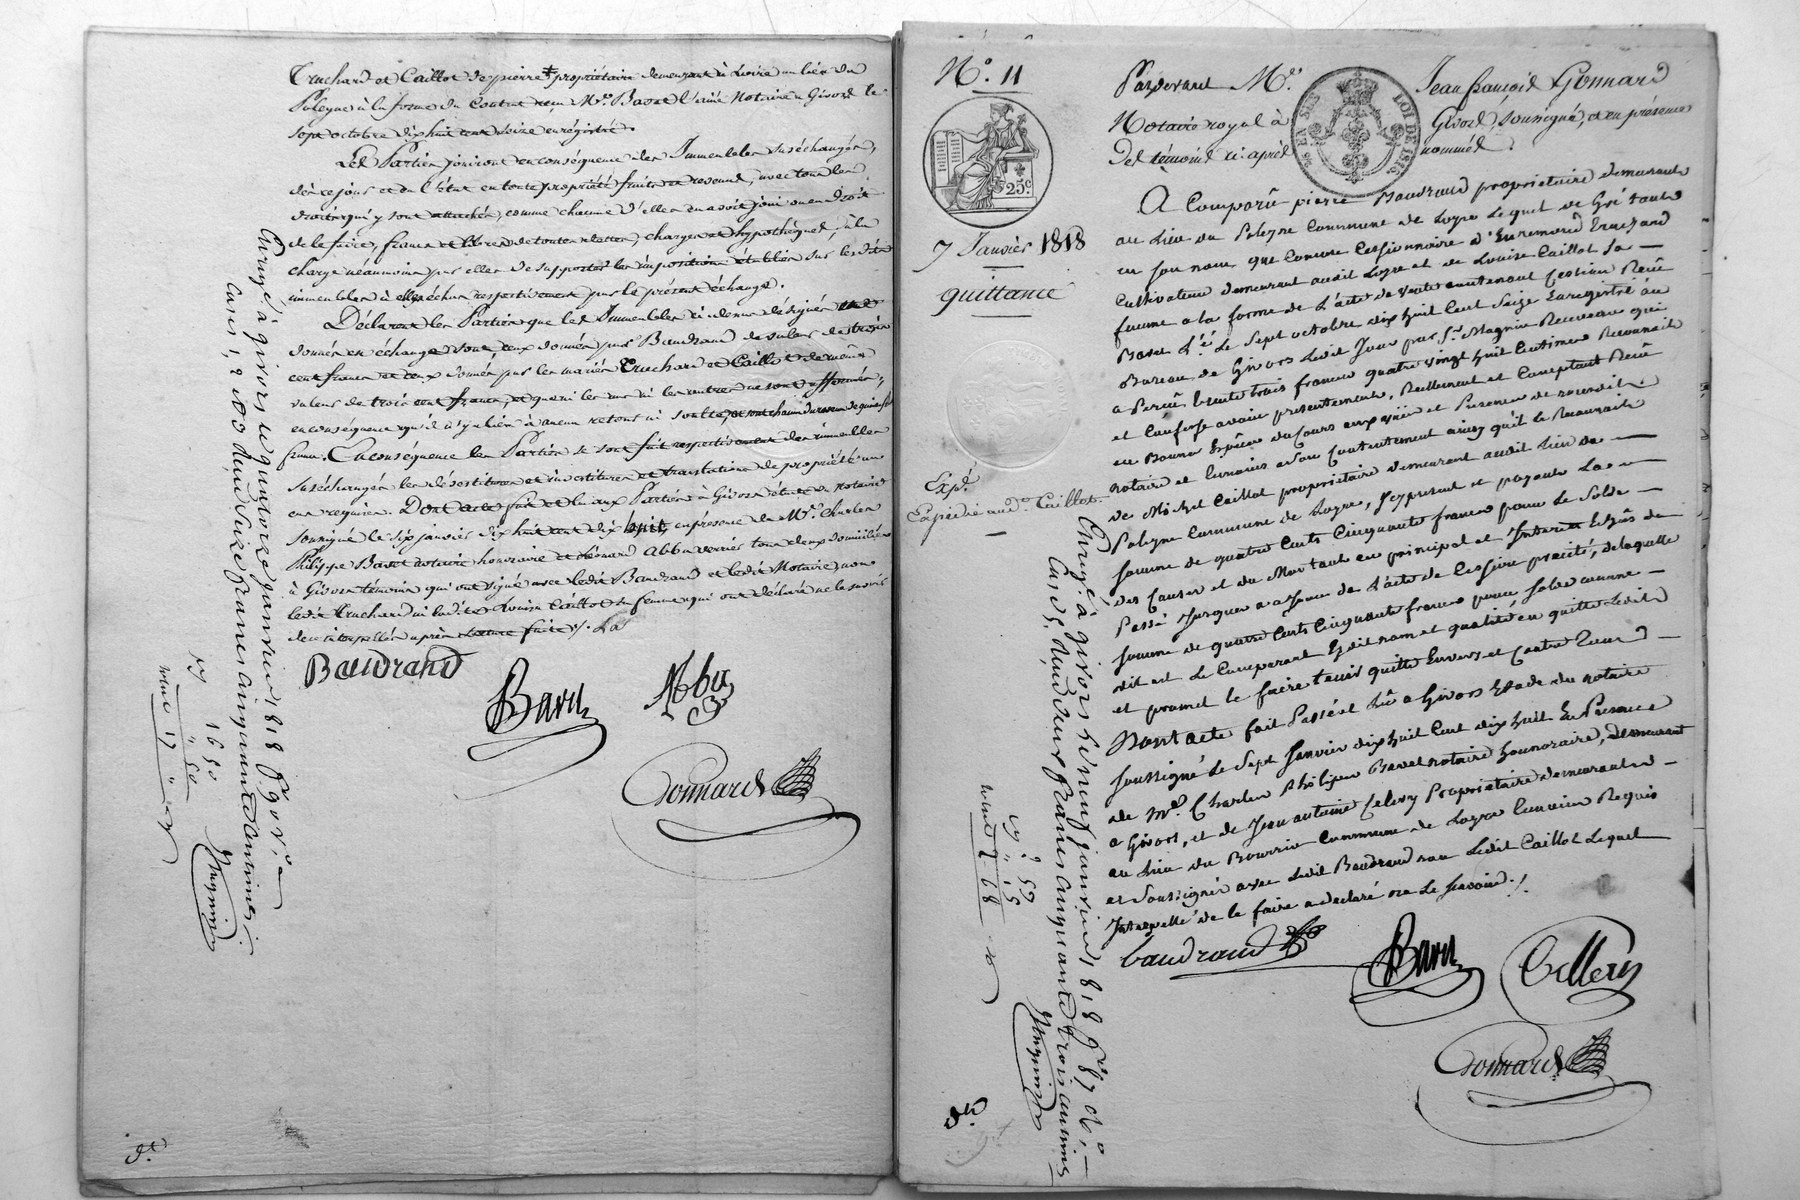 Truchard et Caillot de pierre propriétaire demeurant à Loire au lieu du
Pelegne à la forme du Contrat reçu Me. Bavet l'ainé Notaire à Givors le
sept octobre dix huit cent seize enrégistré.
Les Parties jouiront en conséquence des Immeubles susechangés,
dès ce jour et en l'état en toute propriété fruits et revenus, avec tous les
droits qui y sont attachés, comme chacune d'elles en a ou joui ou en droit
de le faire, francs et libres de toutes dettes, charges et hypothèques, à la
charge néanmoins par elles de supporter les impositions établies sur lesdits
immeubles à elles échus respectivement par le présent échange.
Déclarent les Parties que les Immeubles ci dessus désignés
donnés en échange sont, ceux donnés par Baudrand de valeur de trois
cent francs et ceux donnés par les mariés Truchard et Caillot de même
valeur de trois cent francs, et que ni les uns ni les autres ne sont affermés,
en conséquence qu'il n'y a lieu à aucun retour ni soulte,
francs. En conséquence les Parties se sont fait respectivement des immeubles
susechangés les dévestitures et investitures et translations de propriété en
cas requises. Dont acte fait et lu aux Parties à Givors étude du notaire
soussigné le six janvier dix huit cent dix huit, en présence de Me. Charles
Philippe Bavet notaire honoraire et Léonard Abbu verrier tous deux domiciliés
à Givors témoins qui ont signé avec ledit Baudrand et ledit Notaire, non
ledit Truchard ni ladite Louise Caillot sa femme qui ont déclaré ne le savoir
de ce interpellés après lecture faite ./. La
Baudrand
Bavet
Abbu
Gonnard
Enregé à givors le quatorze janvier 1818
Cases 1, 2 et 3 Reçu Seize francs cinquante centimes.
16 50
" 50
17 "
N°. 11
25c
7 Janvier 1818
quittance
Expé.
Expédié aud. Caillot.
EN SUS
LOI DE 1816
Pardevant Me. Jean françois Gonnard
Notaire royal à Givors, soussigné, et en présence
Des témoins ci après nommés
A Comparu pierre Baudrand propriétaire demeurant
au Lieu du Pelegne Commune de Loyre Lequel de Gré tant
en son nom que Comme Cessionnaire d' Truchard
Cultivateur demeurant audit Loyre et de Louise Caillot Sa
femme a la forme de L'acte de Vente contenant Cession Reçu
Bavet L'é. Le Sept octobre dix huit Cent Seize Enregistré au
Bureau de Givors Ledit Jour par Sr. Magnin Receveur qui
a Perçu trente trois francs quatre vingt huit Centimes Reconnait
et Confesse avoir présentement, Reellement et Comptant Reçu
en Bonnes Espèces du Cours aux vües et Présence de nousdit
notaire et temoins a Son Contentement ainsy quil le Reconnaît
de Michel Caillot propriétaire demeurant audit Lieu du
Pelegne Commune de Loyre, Icy présent et payant La
Somme de quatre Cents Cinquante francs pour le Solde
des Causes et du Montant en principal et Interets Echûs du
Passé Jusques a ce Jour de L'acte de Cession précité, de laquelle
Somme de quatre Cents Cinquante francs pour Solde comme
dit est Le Comparant Esdit nom et qualité en quitte Ledit
et promet le faire tenir quitte Envers et Contre Tous
Dont acte fait Passé et Lû a Givors Etude du notaire
soussigné Le Sept Janvier dix huit Cent dix huit En Présence
de Me. Charles Philippe Bavet notaire honnoraire, demeurant
a Givors, et de Jean antoine Celery Propriétaire demeurant
au Lieu du Bourrin Commune de Loyre temoins Requis
et Soussignés avec Ledit Baudrand non Ledit Caillot Lequel
Interpellé de le faire a declaré ne Le savoir ./.
baudrand
Bavet
Cellery
Gonnard
Enregé à givors le neuf janvier 1818
Case 5, Reçu deux francs cinquante trois centimes